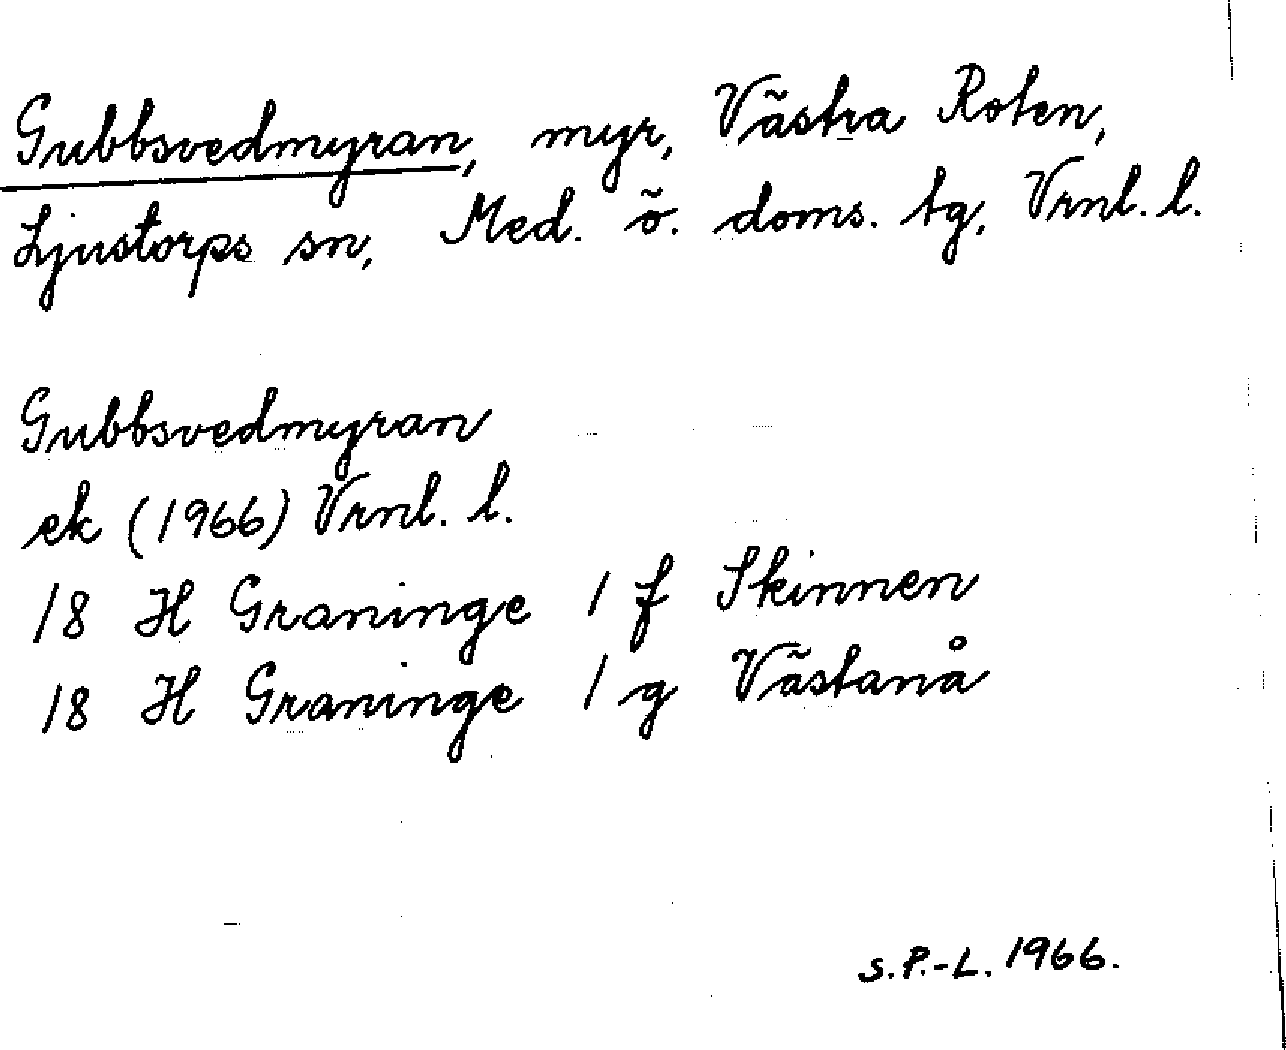 Gubbsvedmyran, myr, Västra Roten,
Ljustorps sn, Med. ö. doms. tg, Vrnl. l.
Gubbsvedmyran
ek (1966) Vrnl. l.
18 H Graninge 1 f Skinnen
18 H Graninge 1 g Västanå
S.P.-L. 1966.